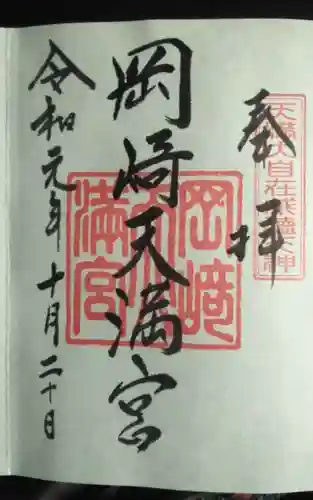 奉拝
天満大自在威徳天神
岡崎天満宮
岡崎天満宮
令和元年十月二十日